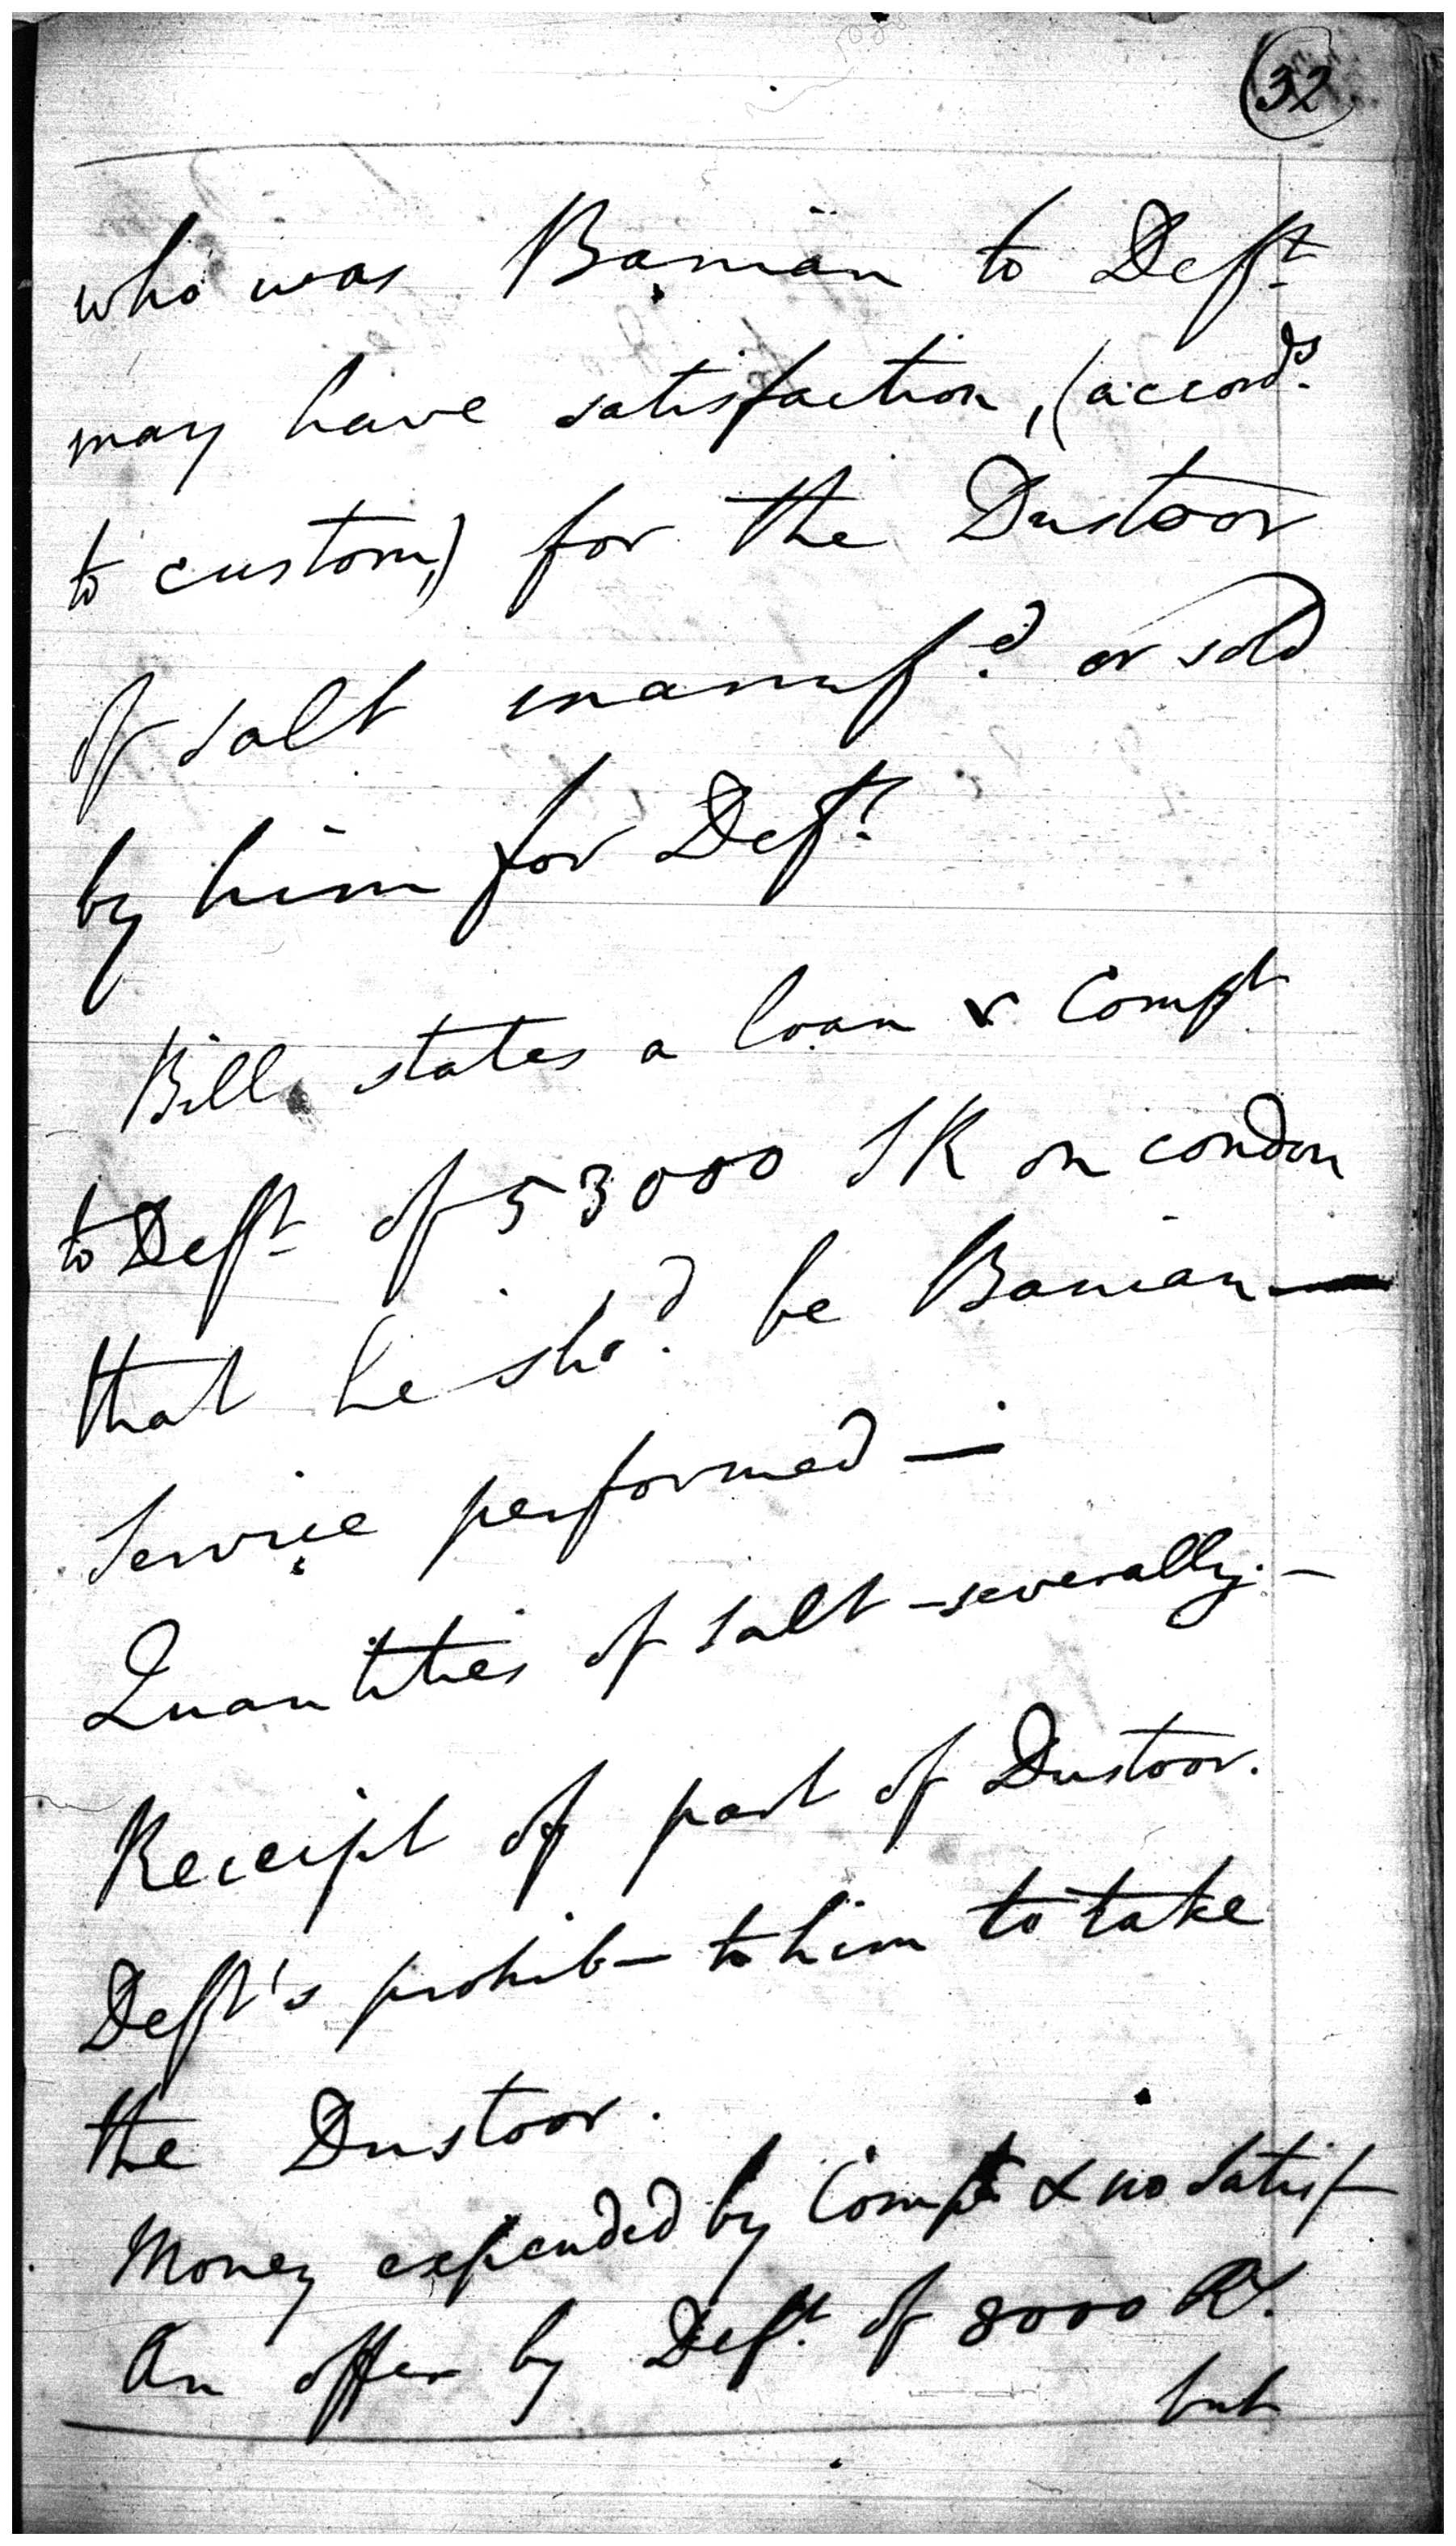 32
who was Banian to Deft
may have satisfaction, (accordg
to custom,) for the Dustoor
of salt manufd or sold
by him for Deft
Bill states a loan & Compt
to Deft of 53000 SR on condon
that he shod be Banian —
Service performed —
Quantities of salt - severally. -
Receipt of part of Dustoor.
Deft's prohib— to him to take
the Dustoor.
Money expended by Compt & no satisf—
An offer by Deft of 8000 Rs.
but